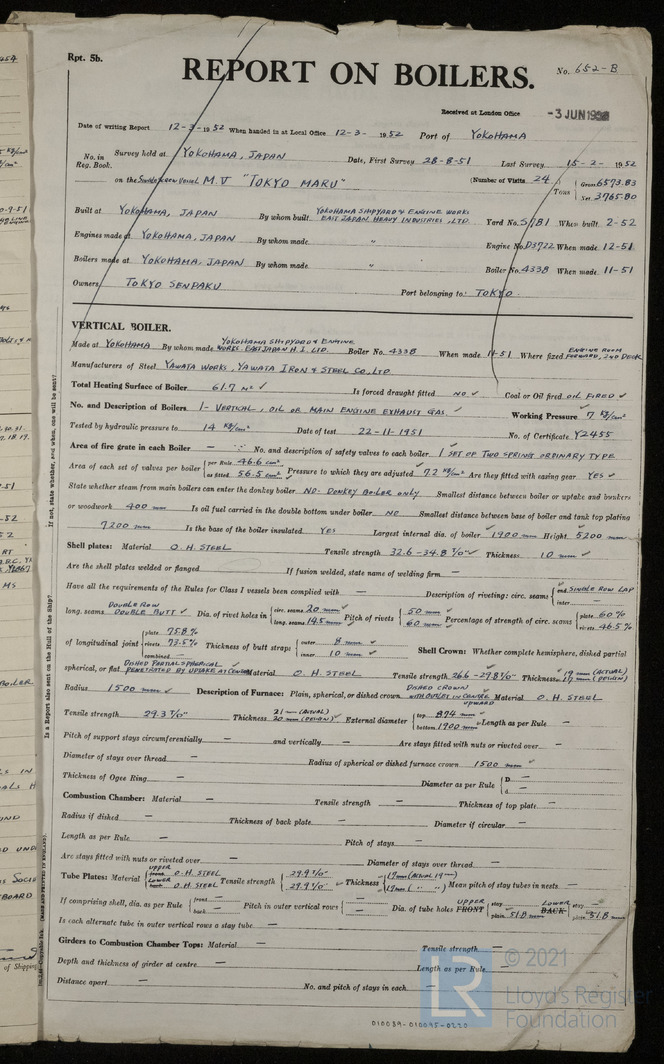 Rpt. 5b.
REPORT ON BOILERS.
No. 652-B
Received at London Office -3 JUN 1952
Date of writing Report 12-3-1952 When handed in at Local Office 12-3-1952 Port of YOKOHAMA
No. in Reg. Book. Survey held at YOKOHAMA, JAPAN Date, First Survey 28-8-51 Last Survey 15-2-1952
on the M.V "TOKYO MARU" (Number of Visits 24) Tons Gross 6573.83 Net 3765.80
Built at YOKOHAMA, JAPAN By whom built YOKOHAMA SHIPYARD & ENGINE WORKS EAST JAPAN HEAVY INDUSTRIES, LTD. Yard No. S781 When built 2-52
Engines made at YOKOHAMA, JAPAN By whom made " Engine No. D3722 When made 12-51
Boilers made at YOKOHAMA, JAPAN By whom made " Boiler No. 4338 When made 11-51
Owners TOKYO SENPAKU Port belonging to: TOKYO.
VERTICAL BOILER.
Made at YOKOHAMA By whom made YOKOHAMA SHIPYARD & ENGINE WORKS. EAST JAPAN H.I. LTD. Boiler No. 4338 When made 11-51 Where fixed ENGINE ROOM FORWARD, 2ND DECK
Manufacturers of Steel YAWATA WORKS, YAWATA IRON & STEEL CO. LTD
Total Heating Surface of Boiler 61.7 m² ✓ Is forced draught fitted NO ✓ Coal or Oil fired OIL FIRED ✓
No. and Description of Boilers 1- VERTICAL, OIL OR MAIN ENGINE EXHAUST GAS ✓ Working Pressure 7 kg/cm²
Tested by hydraulic pressure to 14 kg/cm² Date of test 22-11-1951 No. of Certificate Y2455
Area of fire grate in each Boiler — No. and description of safety valves to each boiler 1 SET OF TWO SPRING ORDINARY TYPE
Area of each set of valves per boiler per Rule 46.6 cm² as fitted 56.5 cm² Pressure to which they are adjusted 7.2 kg/cm² Are they fitted with easing gear YES ✓
State whether steam from main boilers can enter the donkey boiler NO. DONKEY BOILER ONLY Smallest distance between boiler or uptake and bunkers
or woodwork 400 mm Is oil fuel carried in the double bottom under boiler NO Smallest distance between base of boiler and tank top plating
7200 mm Is the base of the boiler insulated YES Largest internal dia. of boiler 1900 mm Height 5200 mm
Shell plates: Material O.H. STEEL Tensile strength 32.6-34.8 T/□" ✓ Thickness 10 mm ✓
Are the shell plates welded or flanged If fusion welded, state name of welding firm —
Have all the requirements of the Rules for Class I vessels been complied with — Description of riveting: circ. seams end SINGLE ROW LAP inter. —
long. seams DOUBLE ROW DOUBLE BUTT ✓ Dia. of rivet holes in circ. seams 20 mm ✓ long. seams 14.5 mm ✓ Pitch of rivets 50 mm 60 mm Percentage of strength of circ. seams plate 60% rivets 46.5%
of longitudinal joint plate 75.8% rivets 73.5% combined Thickness of butt straps outer 8 mm inner 10 mm Shell Crown: Whether complete hemisphere, dished partial
spherical, or flat DISHED PARTIAL SPHERICAL PENETRATED BY UPTAKE AT CENTRE Material O.H. STEEL Tensile strength 26.6-29.8 T/□" Thickness 19 mm (ACTUAL) 17 mm (DESIGN)
Radius 1500 mm Description of Furnace: Plain, spherical, or dished crown DISHED CROWN WITH OUTLET IN CENTRE UPWARD Material O.H. STEEL
Tensile strength 29.3 T/□" Thickness 21 mm (ACTUAL) 20 mm (DESIGN) External diameter top 874 mm bottom 1700 mm Length as per Rule —
Pitch of support stays circumferentially — and vertically — Are stays fitted with nuts or riveted over —
Diameter of stays over thread — Radius of spherical or dished furnace crown 1500 mm ✓
Thickness of Ogee Ring — Diameter as per Rule D — d —
Combustion Chamber: Material — Tensile strength — Thickness of top plate —
Radius if dished — Thickness of back plate — Diameter if circular —
Length as per Rule — Pitch of stays —
Are stays fitted with nuts or riveted over — Diameter of stays over thread —
Tube Plates: Material UPPER front O.H. STEEL LOWER back O.H. STEEL Tensile strength 29.9 T/□" 29.9 T/□" Thickness 17 mm (ACTUAL 19 mm) 17 mm ( " " ) Mean pitch of stay tubes in nests —
If comprising shell, dia. as per Rule front — back — Pitch in outer vertical rows — Dia. of tube holes UPPER FRONT stay — plain 51.8 mm LOWER BACK stay — plain 51.8 mm
Is each alternate tube in outer vertical rows a stay tube —
Girders to Combustion Chamber Tops: Material — Tensile strength —
Depth and thickness of girder at centre — Length as per Rule —
Distance apart — No. and pitch of stays in each —
If not, state whether, and when, one will be sent?
Is a Report also sent on the Hull of the Ship?
(MADE AND PRINTED IN ENGLAND.)
010089-010095-0220
LR
© 2021
Lloyd's Register
Foundation